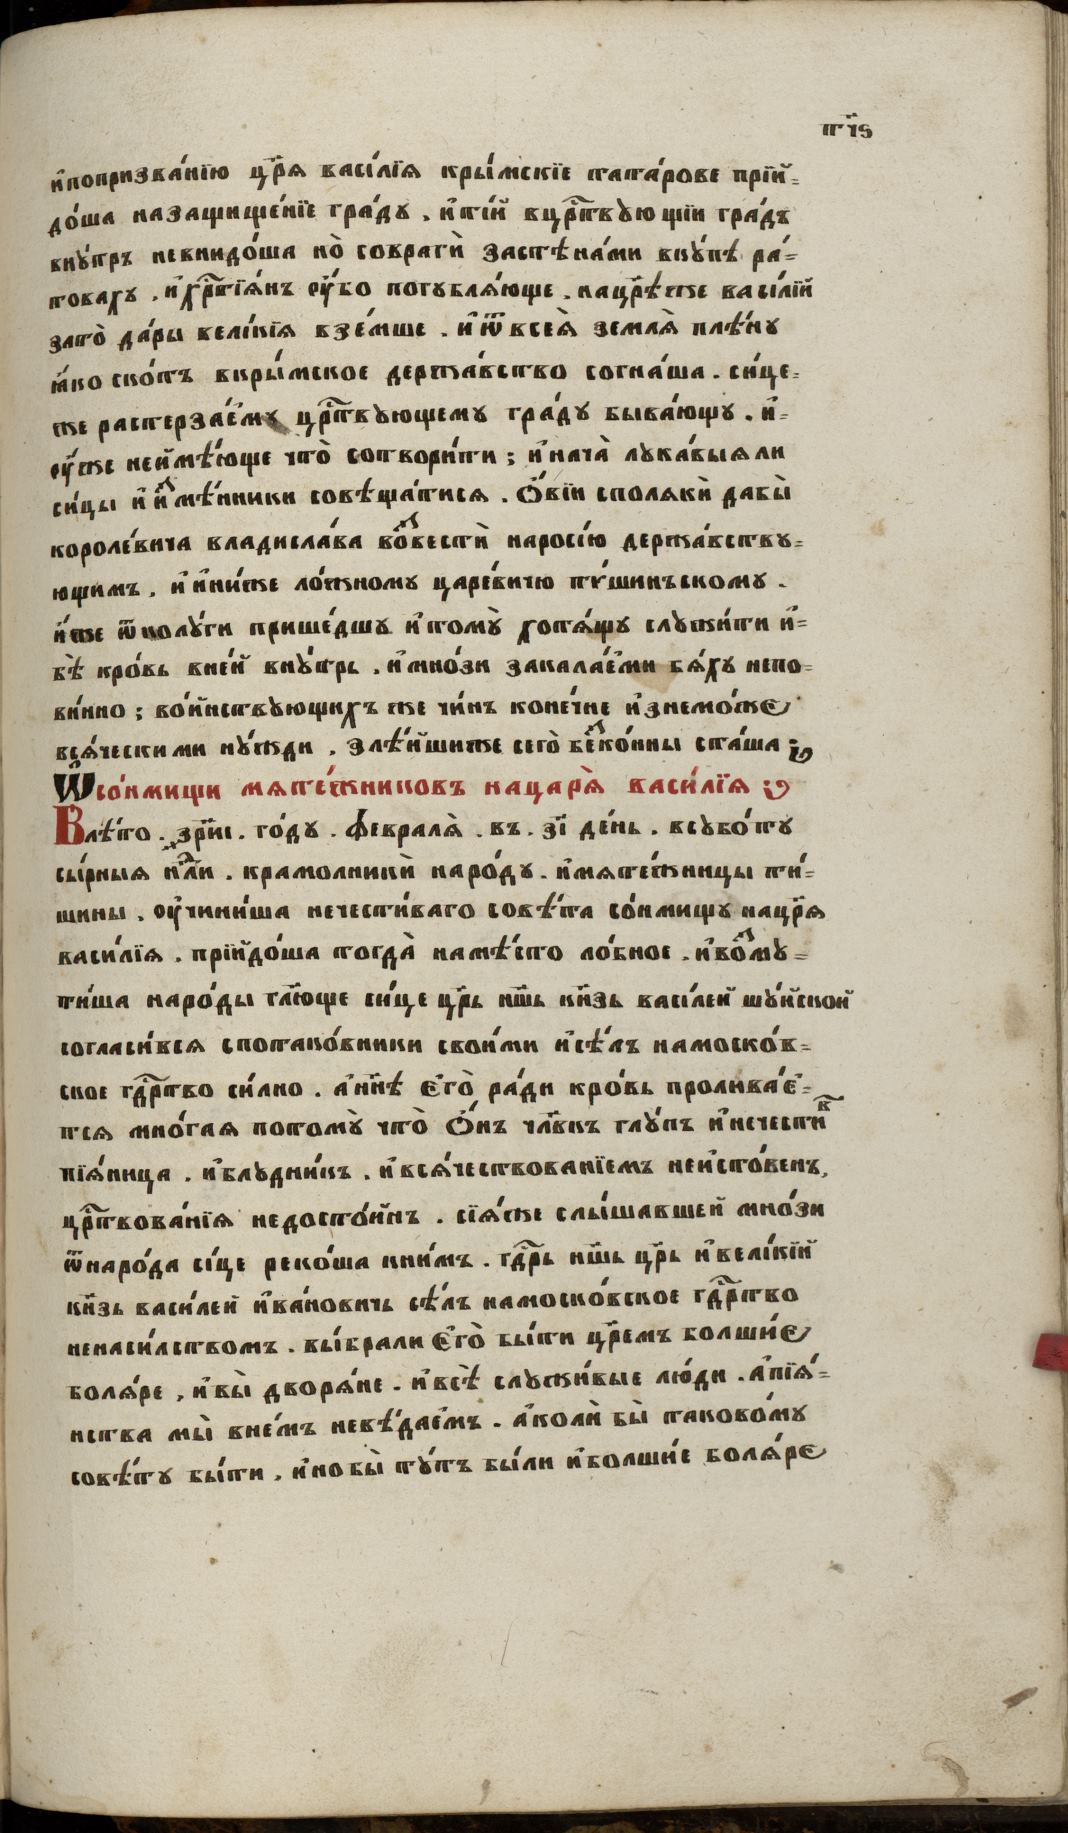 тг҃і ѕ
и҆попризва́нїю цр҃ѧ васи́лїѧ кры́мскїе тата́рове прїй=
до́ша назащище́нїе гра́дꙋ . и҆ті́и вцр҃твꙋющїи гра́дъ
внꙋ́трь невнидо́ша но̀ собратѝ застѣна́ми вкꙋ́пѣ ра́=
товахꙋ . и҆хр҃тїѧ́нъ ᲂу҆́бо погꙋблѧ́юще . нацр҃ѣ́же васі́лїй
зато̀ да́ры вели́кїѧ взе́мше . и҆ ѿ всеѧ̀ землѧ̀ плѣ́нꙋ
ꙗ҆́ко ско́тъ вкры́мское держа́вство согна́ша . си́це=
же растерза́емꙋ цр҃твꙋющемꙋ гра́дꙋ быва́ющꙋ . и҆=
ᲂу҆́же неимѣ́юще что̀ сотвори́ти ; и҆нача̀ лꙋка́выѧ ли
си́цы и҆ и҆змѣ́нники совѣща́тисѧ . Ѻ҆́вїи сполѧкѝ дабы̀
короле́вича владисла́ва возвестѝ наросі́ю держа́вствꙋ=
ющимъ . и҆ и҆ні́иже ло́жномꙋ царе́вичю тꙋ́шинъскомꙋ .
и҆́же ѿ колꙋ́ги прише́дшꙋ и҆томꙋ̀ хотѧ́щꙋ слꙋжи́ти и҆=
бѣ̀ кро́вь вне́й внꙋ́трь . и҆мно́зи закала́еми бѧ́хꙋ непо=
ви́нно ; во́инствꙋющихъ же чи́нъ коне́чне и҆знемо́же
всѧ́ческими нꙋ́жди . злѣ́йшиже сего̀ безко́нны ста́ша :
Ѡ҆ со́нмищи мѧте́жниковъ нацарѧ̀ васи́лїѧ :
Влѣ́то . зр҃иі . го́дꙋ . февралѧ̀ . въ . зі҃ де́нь . всꙋбо́тꙋ
сы́рныѧ нл҃и . крамолникѝ наро́дꙋ . и҆мѧте́жницы ти́=
шины . ᲂу҆чини́ша нечести́ваго совѣ́та со́нмищꙋ нацр҃ѧ
васи́лїѧ . прїйдо́ша тогда̀ намѣ́сто ло́бное . и҆возмꙋ=
ти́ша наро́ды гл҃юще си́це цр҃ь нш҃ь кн҃зь васи́лей шꙋ́йской
согласи́всѧ спотако́вники свои́ми и҆сѣ́лъ намоско́в=
ское гдр҃тво си́лно . а҆ нн҃ѣ є҆го̀ ра́ди кро́вь пролива́е=
тсѧ мно́гаѧ потомꙋ̀ что̀ Ѻ҆́нъ чл҃вкъ глꙋ́пъ и҆нечести́в
пїѧ́ница . и҆блꙋдни́къ . и҆всѧ́чествованїемъ неи́стовенъ,
цр҃твова́нїѧ недосто́инъ . сїѧ́же слы́шавшей мно́зи
ѿнаро́да си́це реко́ша кни́мъ . гдр҃ь нш҃ь цр҃ь и҆вели́кїй
кн҃зь васи́лей и҆ва́новичь сѣ́лъ намоско́вское гдр҃тво
ненаси́лством . вы́брали є҆го̀ бы́ти цр҃емъ болши́е
болѧ́ре , и҆вы̀ дворѧ́не . и҆всѣ̀ слꙋжи́вые лю́ди . а҆пїѧ́=
нства мы̀ вне́мъ невѣ́даемъ . а҆колѝ бы̀ таково́мꙋ
совѣ́тꙋ бы́ти . и҆нобы̀ тꙋ́тъ бы́ли и҆болши́е болѧ́ре